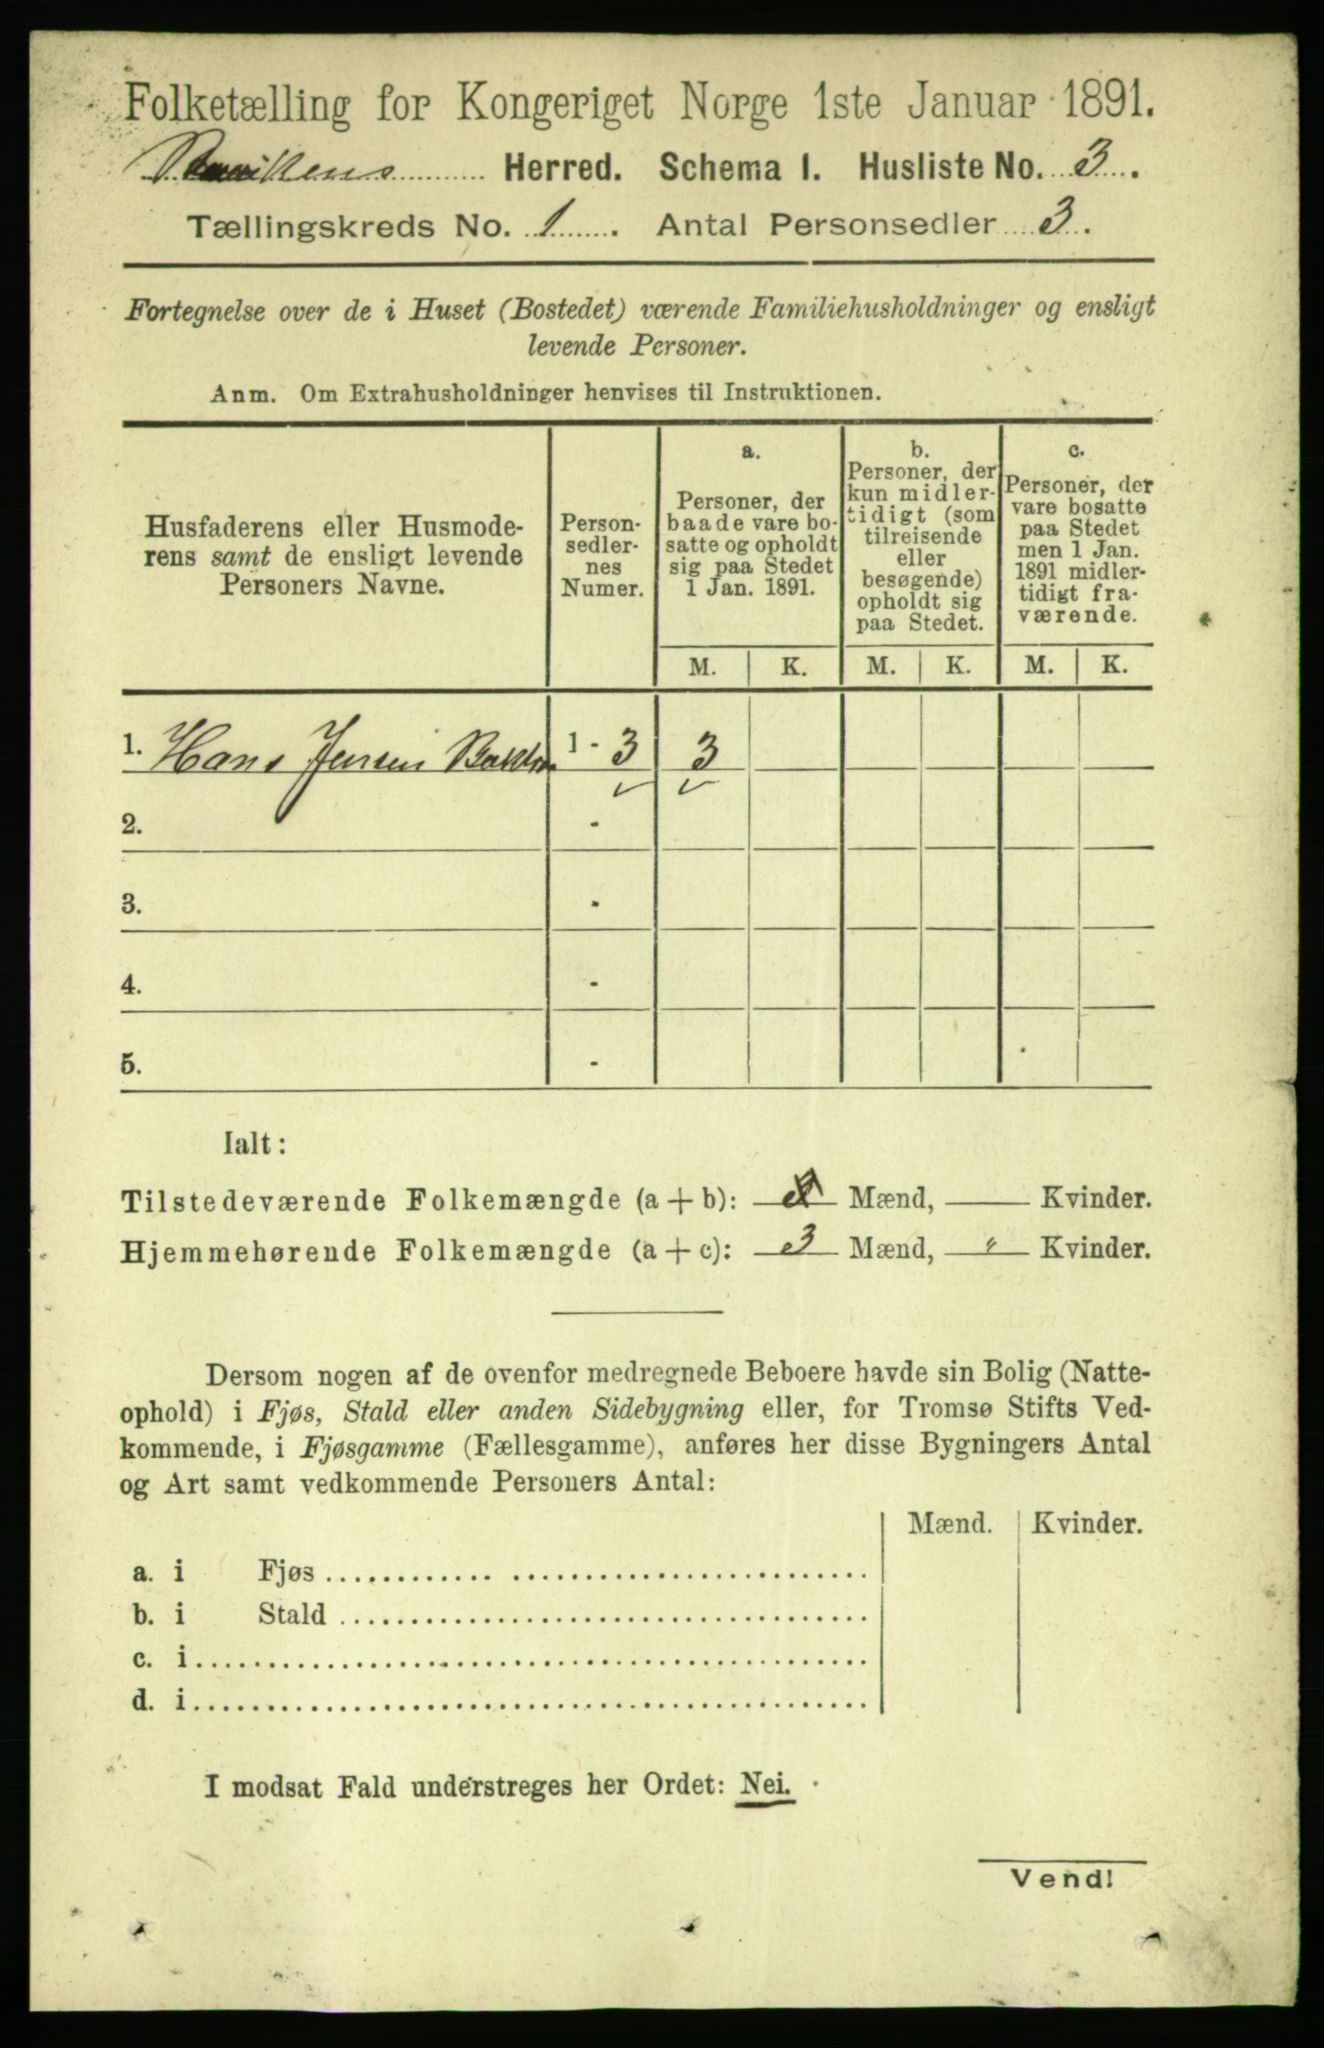 Folketælling for Kongeriget Norge 1ste Januar 1891.
Herred. Schema 1. Husliste No. 3.
Tællingskreds No. 1. Antal Personsedler 3.
Fortegnelse over de i Huset (Bostedet) værende Familiehusholdninger og ensligt
levende Personer.
Anm. Om Extrahusholdninger henvises til Instruktionen.
Husfaderens eller Husmode-
rens samt de ensligt levende
Personers Navne.
Person-
sedler-
nes
Numer.
a.
Personer, der
baade vare bo-
satte og opholdt
sig paa Stedet
1 Jan. 1891.
b.
Personer, der
kun midler-
tidigt (som
tilreisende
eller
besøgende)
opholdt sig
paa Stedet.
c.
Personer, der
vare bosatte
paa Stedet
men 1 Jan.
1891 midler-
tidigt fra-
værende.
M. K. M. K. M. K.
1. Hans Jensen 1 - 3 3
2. -
3. -
4. -
5. -
Ialt:
Tilstedeværende Folkemængde (a + b): Mænd, Kvinder.
Hjemmehørende Folkemængde (a + c): 3 Mænd, " Kvinder.
Dersom nogen af de ovenfor medregnede Beboere havde sin Bolig (Natte-
ophold) i Fjøs, Stald eller anden Sidebygning eller, for Tromsø Stifts Ved-
kommende, i Fjøsgamme (Fællesgamme), anføres her disse Bygningers Antal
og Art samt vedkommende Personers Antal:
Mænd. Kvinder.
a. i Fjøs
b. i Stald
c. i
d. i
I modsat Fald understreges her Ordet: Nei.
Vend!